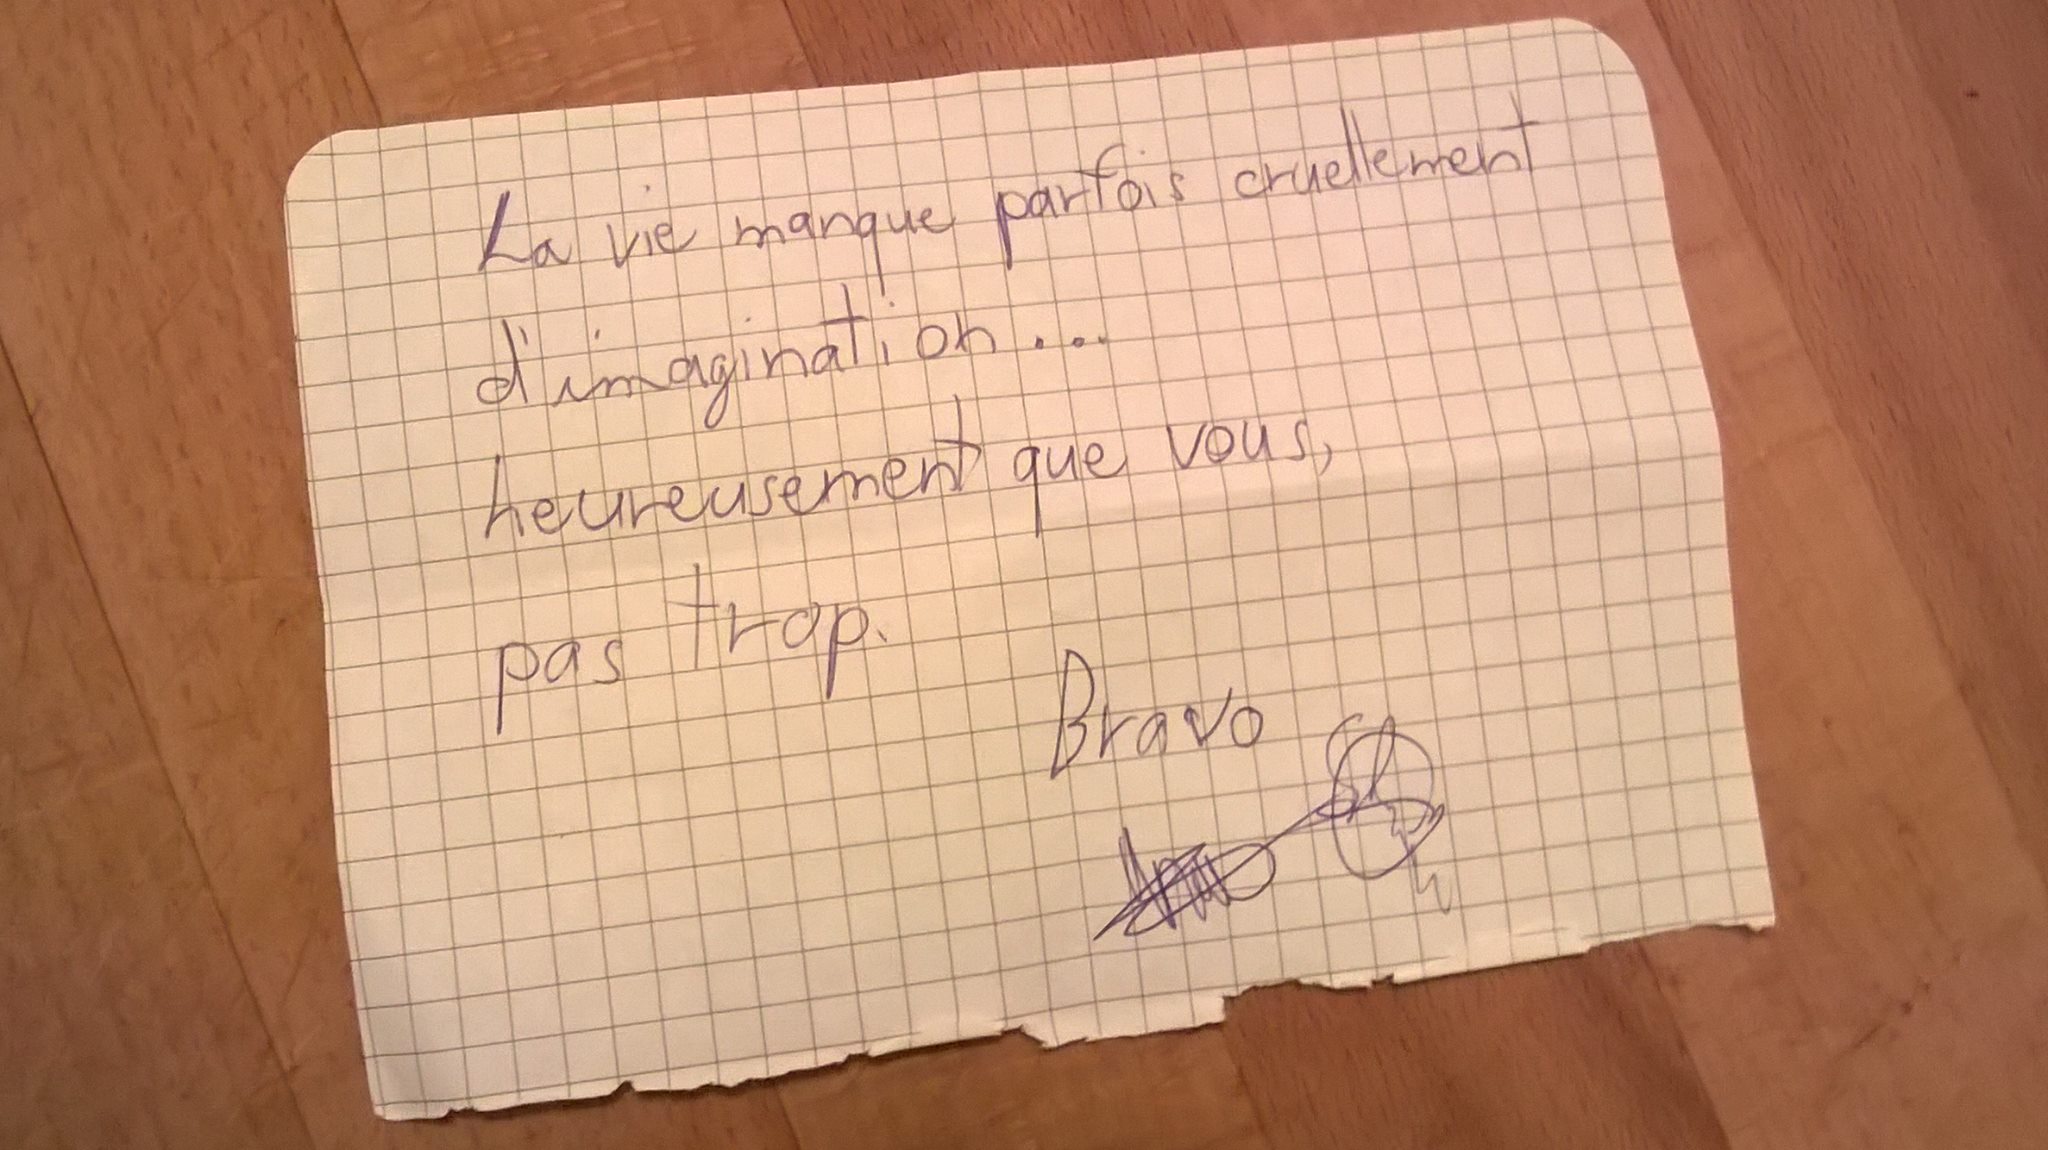 La vie manque parfois cruellement
d'imagination...
heureusement que vous,
pas trop.
Bravo